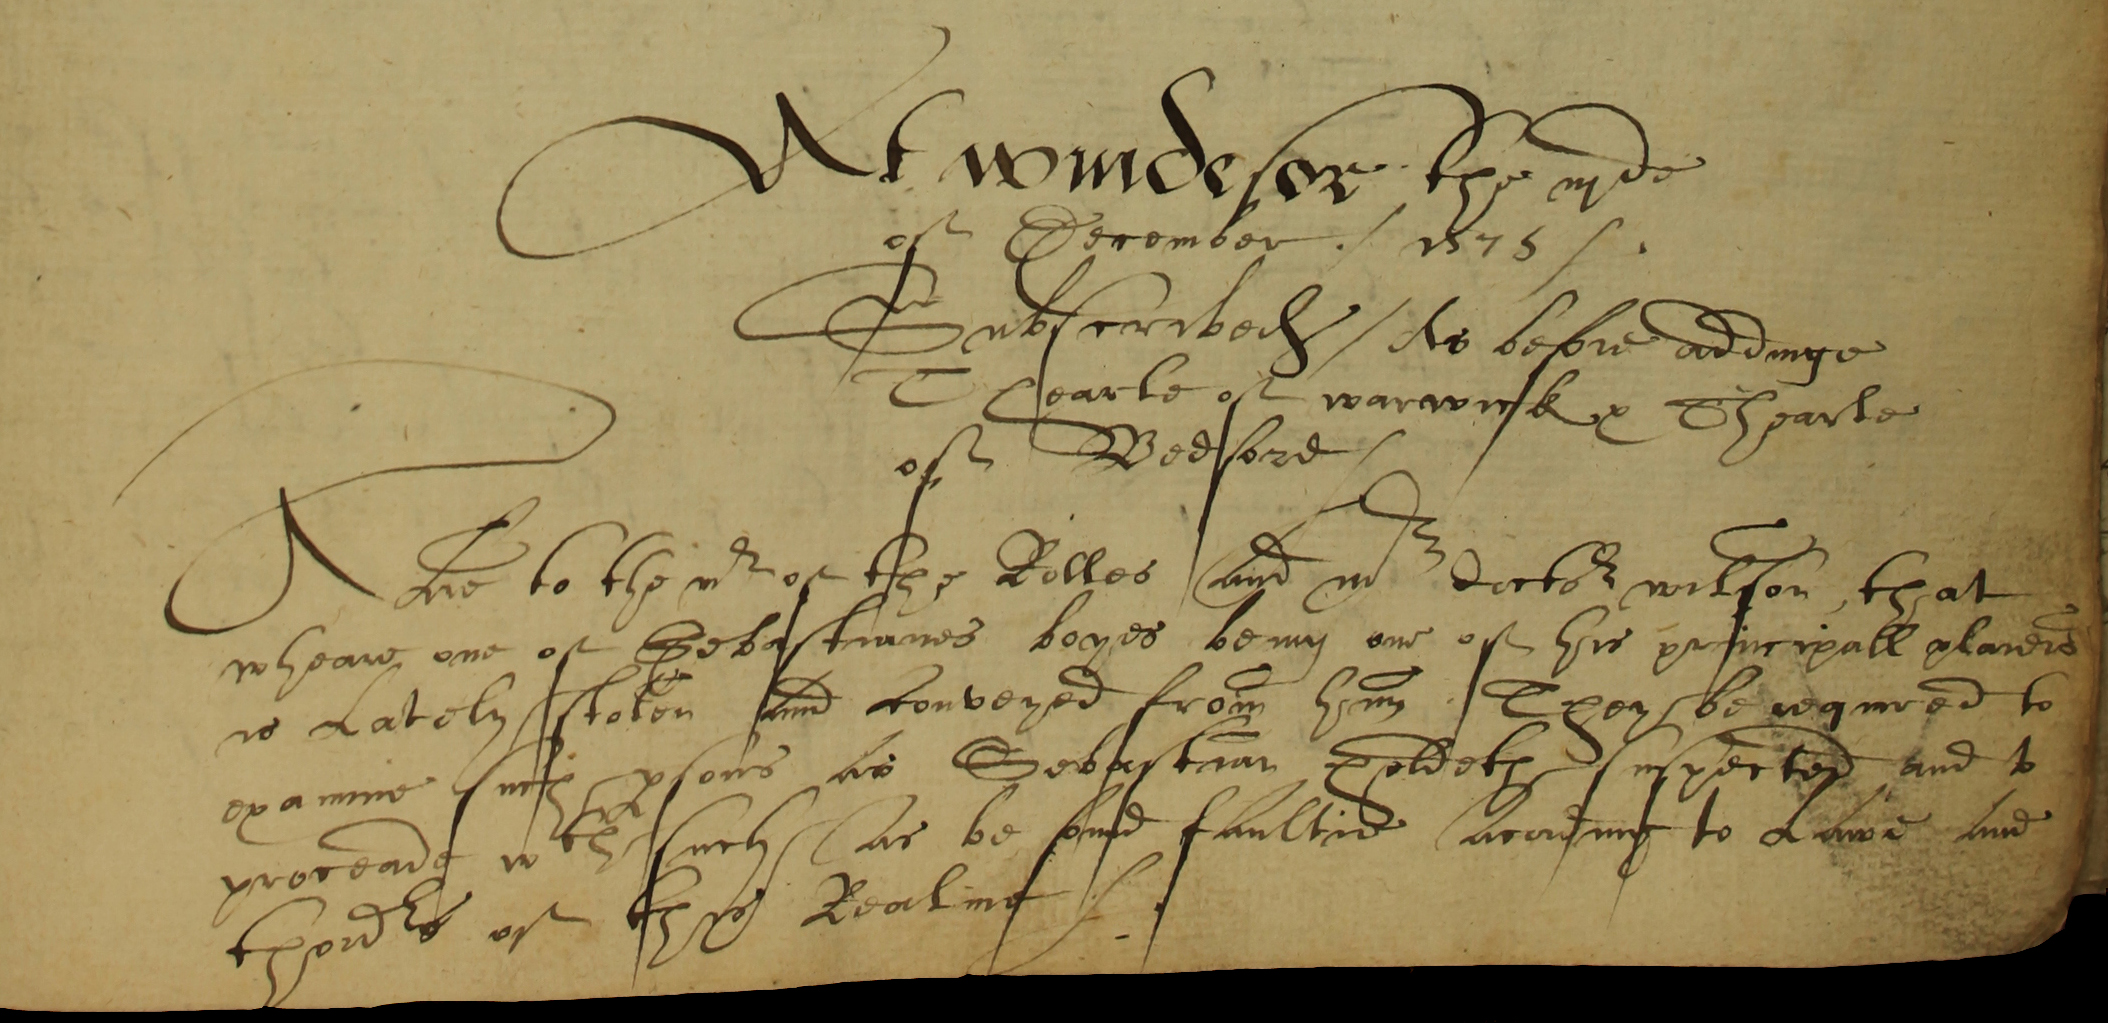 At windesor the iijde
of December / 1575 /.
Subscribed / As before addinge
Thearle of warwick & Thearle
of Bedford /
A lre to the mr of the Rolles and mr doctor wilson, that
wheare one of Sebastianes boyes being one of his principall plaiers
is Lately stolen and conveyed from him. They be required to
examine such psons as Sebastian holdeth suspected and to
proceade wth such as be found faultie according to Lawe and
thordrs of this Realme /.